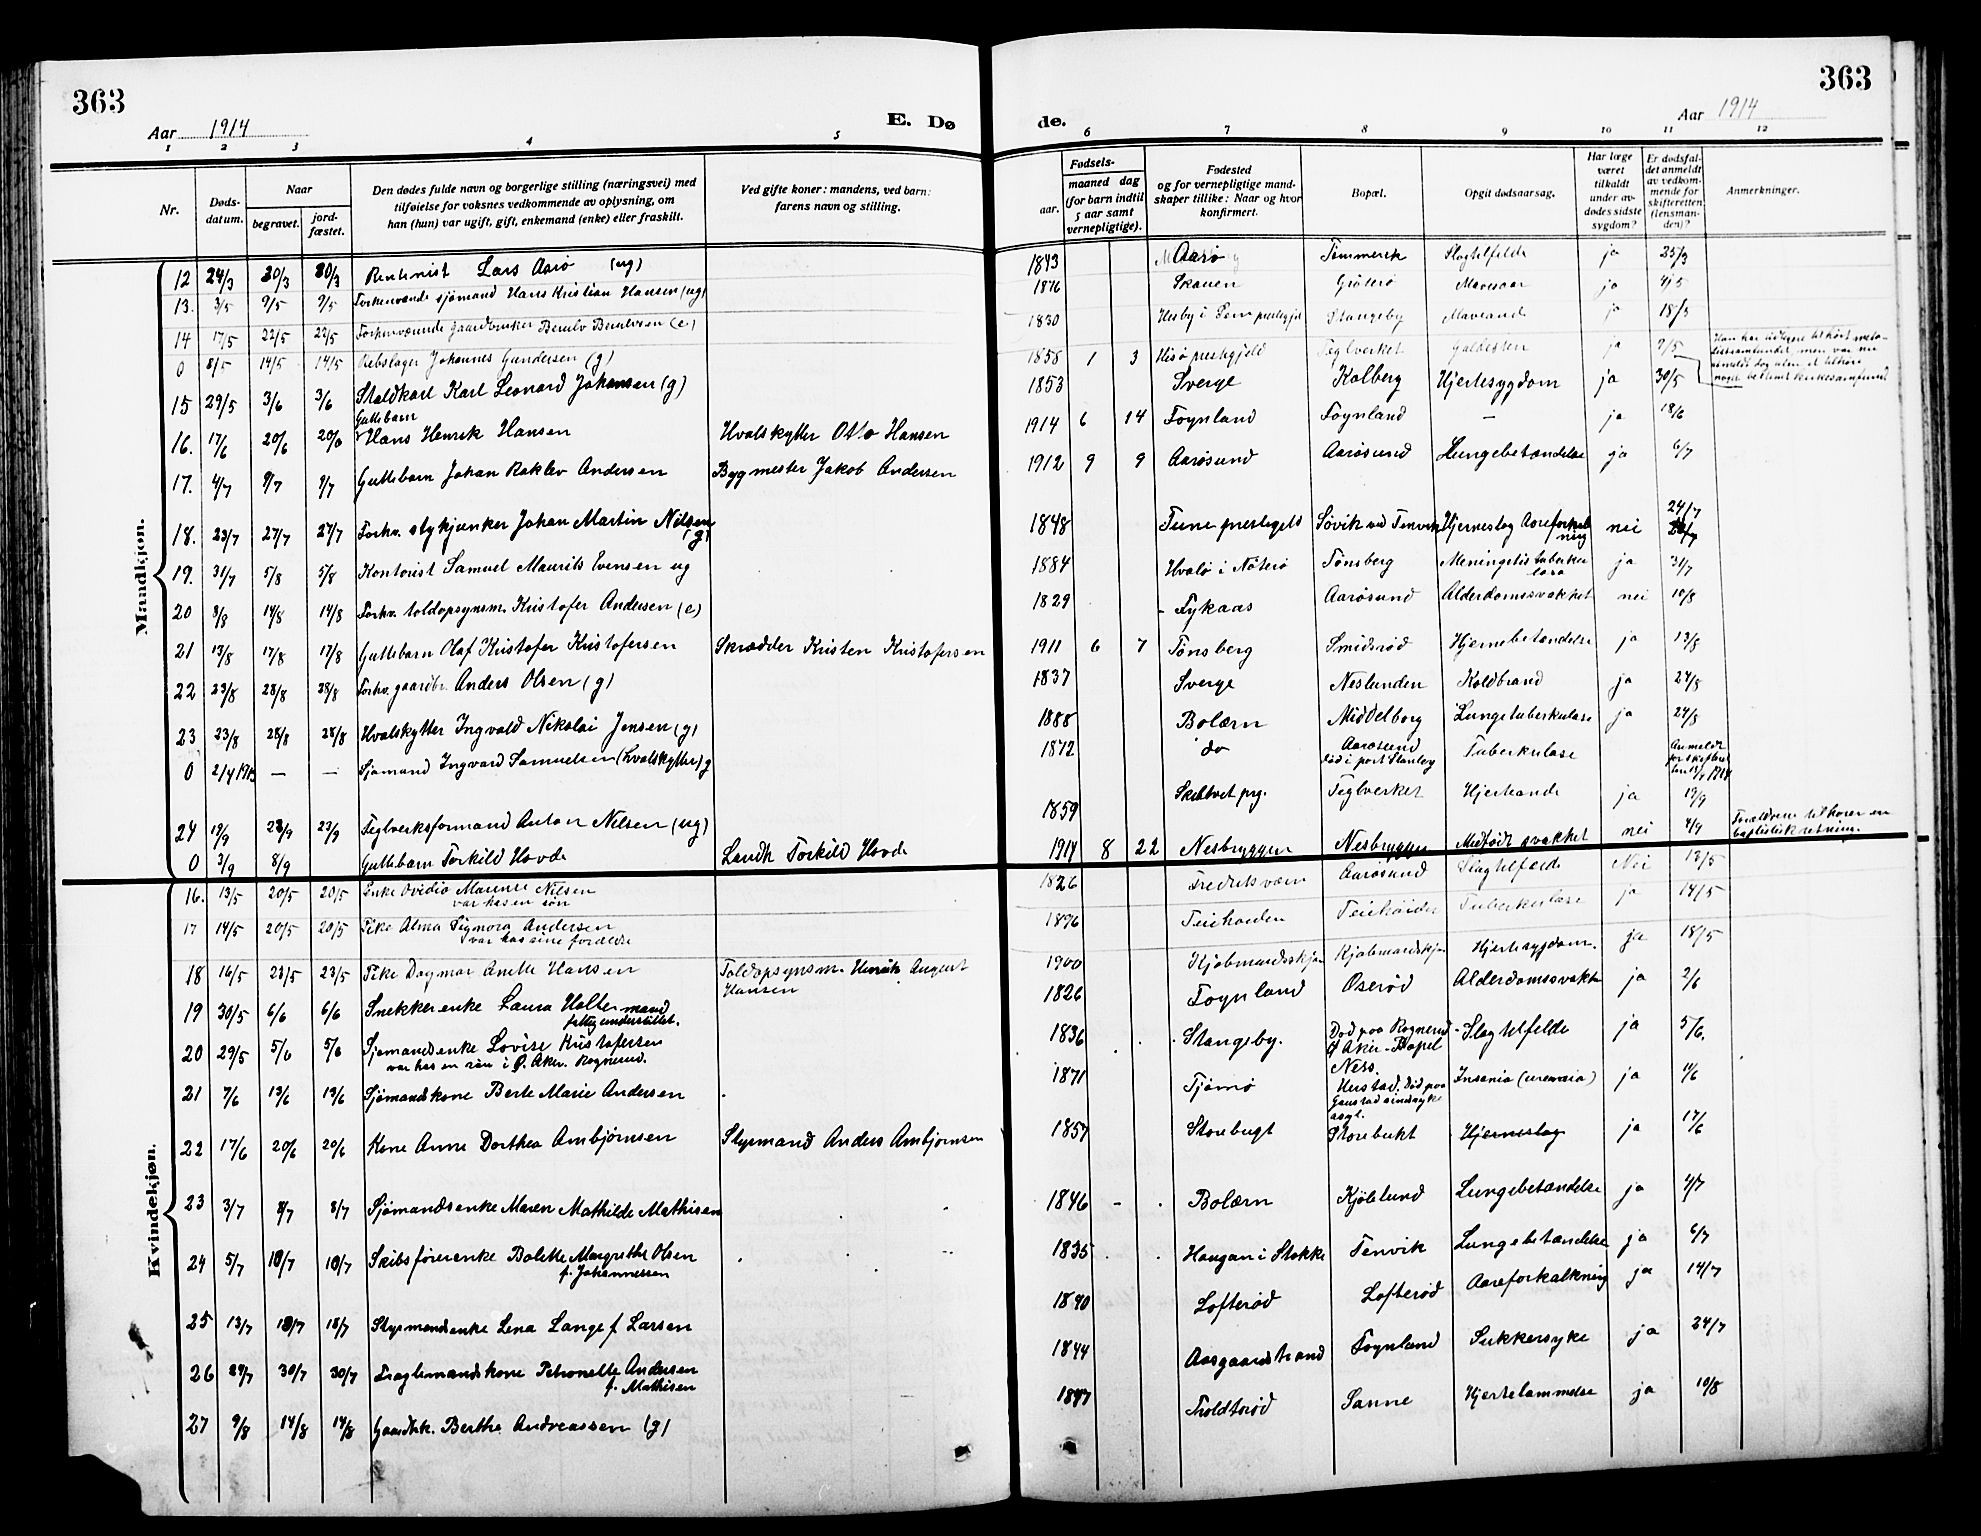 363
363
Aar 1914
E. Dø
de.
Aar 1914
1 2 3 4 5 6 7 8 9 10 11 12
Nr.
Døds-
datum.
Naar
begravet.
jord-
fæstet.
Den dødes fulde navn og borgerlige stilling (næringsvei) med
tilføielse for voksnes vedkommende av oplysning, om
han (hun) var ugift, gift, enkemand (enke) eller fraskilt.
Ved gifte koner: mandens, ved barn:
farens navn og stilling.
Fødsels-
aar.
maaned dag
(for barn indtil
5 aar samt
vernepligtige).
Fødested
og for vernepligtige mand-
skaper tillike: Naar og hvor
konfirmert.
Bopæl.
Opgit dødsaarsag.
Har læge
været
tilkaldt
under av-
dødes sidste
sygdom?
Er dødsfal-
det anmeldt
av vedkom-
mende for
skifteretten
(lensman-
den)?
Anmerkninger.
Mandkjøn.
12 24/3 30/3 30/3 Rentenist Lars Aarø (ug) 1843 Aarø Tømmerek Slagtilfelde ja 25/3
13. 3/5 9/5 9/5 Forhenværende sjømand Hans Kristian Hansen (ug) 1876 Skauen Grøterø Mavesaar ja 4/5
14 17/5 22/5 22/5 Forhenværende gaardbruker Berulv Berulvsen (e) 1830 Husby i Sem prestegj Stangeby Maveand ja 18/5
0 8/5 14/5 14/5 Rebslager Johannes Gundersen (g) 1858 1 3 Hisø prestegjeld Teglverket Galdesten ja 9/5
Han har tidligere tilhørt meto-
distsamfundet men var nu
utmeldt dog uten at tilhøre
noget bestemt kirkesamfund
15 29/5 3/6 3/6 Staldkarl Karl Leonard Johansen (g) 1853 Sverge Kolberg Hjertesygdom ja 30/5
Guttebarn
16. 17/6 20/6 20/6 Hans Henrik Hansen Hvalskytter Otto Hansen 1914 6 14 Føynland Føynland — ja 18/6
17. 4/7 9/7 9/7 Guttebarn Johan Raklev Andersen Bygmester Jakob Andersen 1912 9 9 Aarøsund Aarøsund Lungebetændelse ja 6/7
18. 23/7 27/7 27/7 Forhv. stykjunker Johan Martin Nilsen (g) 1848 Tune prestegjeld Søvik ved Tenvik Hjerneslag Aareforkalk-
ning nei 24/7
19. 31/7 5/8 5/8 Kontorist Samuel Maurits Evensen ug 1884 Hvalø i Nøterø Tønsberg Meningitis tuberku
losa ja 31/7
20 8/8 14/8 14/8 Forhv. toldopsynsm. Kristofer Andersen (e) 1829 Fykaas Aarøsund Alderdomssvakhet nei 10/8
21 13/8 17/8 17/8 Guttebarn Olaf Kristofer Kristofersen Skrædder Kristen Kristofersen 1911 6 7 Tønsberg Smidsrød Hjernebetændelse ja 13/8
22 23/8 28/8 28/8 Forhv. gaardbr. Anders Olsen (g) 1837 Sverge Neslunden Koldbrand ja 24/8
23 23/8 28/8 28/8 Hvalskytter Ingvald Nikolai Jensen (g) 1888 Bolærn Middelborg Lungetuberkulose ja 24/8
0 2/4 1913 — — Sjømand Ingvard Samuelsen (hvalskytter) g 1872 do Aarøsund
død i port Stanley Tuberkulose Anmeldt
for skifteret
24 19/9 23/9 23/9 Teglverksformand Anton Nilsen (ug) 1859 Skibtvet prg. Teglverket Hjerteonde ja 19/9
0 3/9 8/9 Guttebarn Torkild Hovde Landh Torkild Hovde 1914 8 22 Nesbryggen Nesbryggen Medfødt svakhet nei 4/9
Forældrene tilhører en
baptistisk retning.
Kvindekjøn.
16. 13/5 20/5 20/5 Enke Ovedia Marense Nilsen
var hos en søn 1826 Fredriksværn Aarøsund Slagtilfælde Nei 13/5
17 14/5 20/5 20/5 Pike Alma Signora Andersen
var hos sine forældre 1896 Teiehøiden Teiehøiden Tuberkulose ja 14/5
18 16/5 23/5 23/5 Pike Dagmar Anette Hansen Toldopsynsm. Henrik August
Hansen 1900 Kjøbmandsskjær Kjøbmandskjær Hjertesygdom. ja 18/5
19 30/5 6/6 6/6 Snekkerenke Laura Haltermand
fattigunderstøttet. 1826 Føynland Oserød Alderdomssvakh ja 2/6
20 29/5 5/6 5/6 Sjømandsenke Lovise Kristofersen
var hos en søn i Ø. Aker. Rognerud. 1836 Stangeby. Død paa Rognerud
Ø Aker - Bopel
Ness. Slagtilfelde ja 5/6.
21 7/6 13/6 13/6 Sjømandskone Berte Marie Andersen 1871 Tjømø Herstad. død paa
Gaustad sindssyke
asyl. Insania (uremia) ja 11/6
22 17/6 20/6 20/6 Kone Anne Dorthea Ambjørnsen Styrmand Anders Ambjørnsen 1857 Storebugt Storebukt Hjerneslag ja 17/6
23 3/7 8/7 8/7 Sjømandsenke Maren Mathilde Mathisen 1846 Bolærn Kjølelund Lungebetændelse ja 4/7
24 5/7 10/7 10/7 Skibsførerenke Bolette Margrethe Olsen
f. Johannessen 1835 Haugan i Stokke Tenvik Lungebetændelse ja 6/7
25 13/7 18/7 18/7 Styrmandsenke Lena Lange f Larsen 1840 Lofterød Lofterød Aareforkalkning ja 14/7
26 24/7 30/7 30/7 Fragtemandskone Petronelle Andersen
f. Mathisen 1844 Aasgaardstrand Føynland Sukkersyke ja 24/7
27 9/8 14/8 14/8 Gaardbk. Berthe Andreassen (g) 1847 Troldsrød Sanne Hjertelammelse ja 10/8